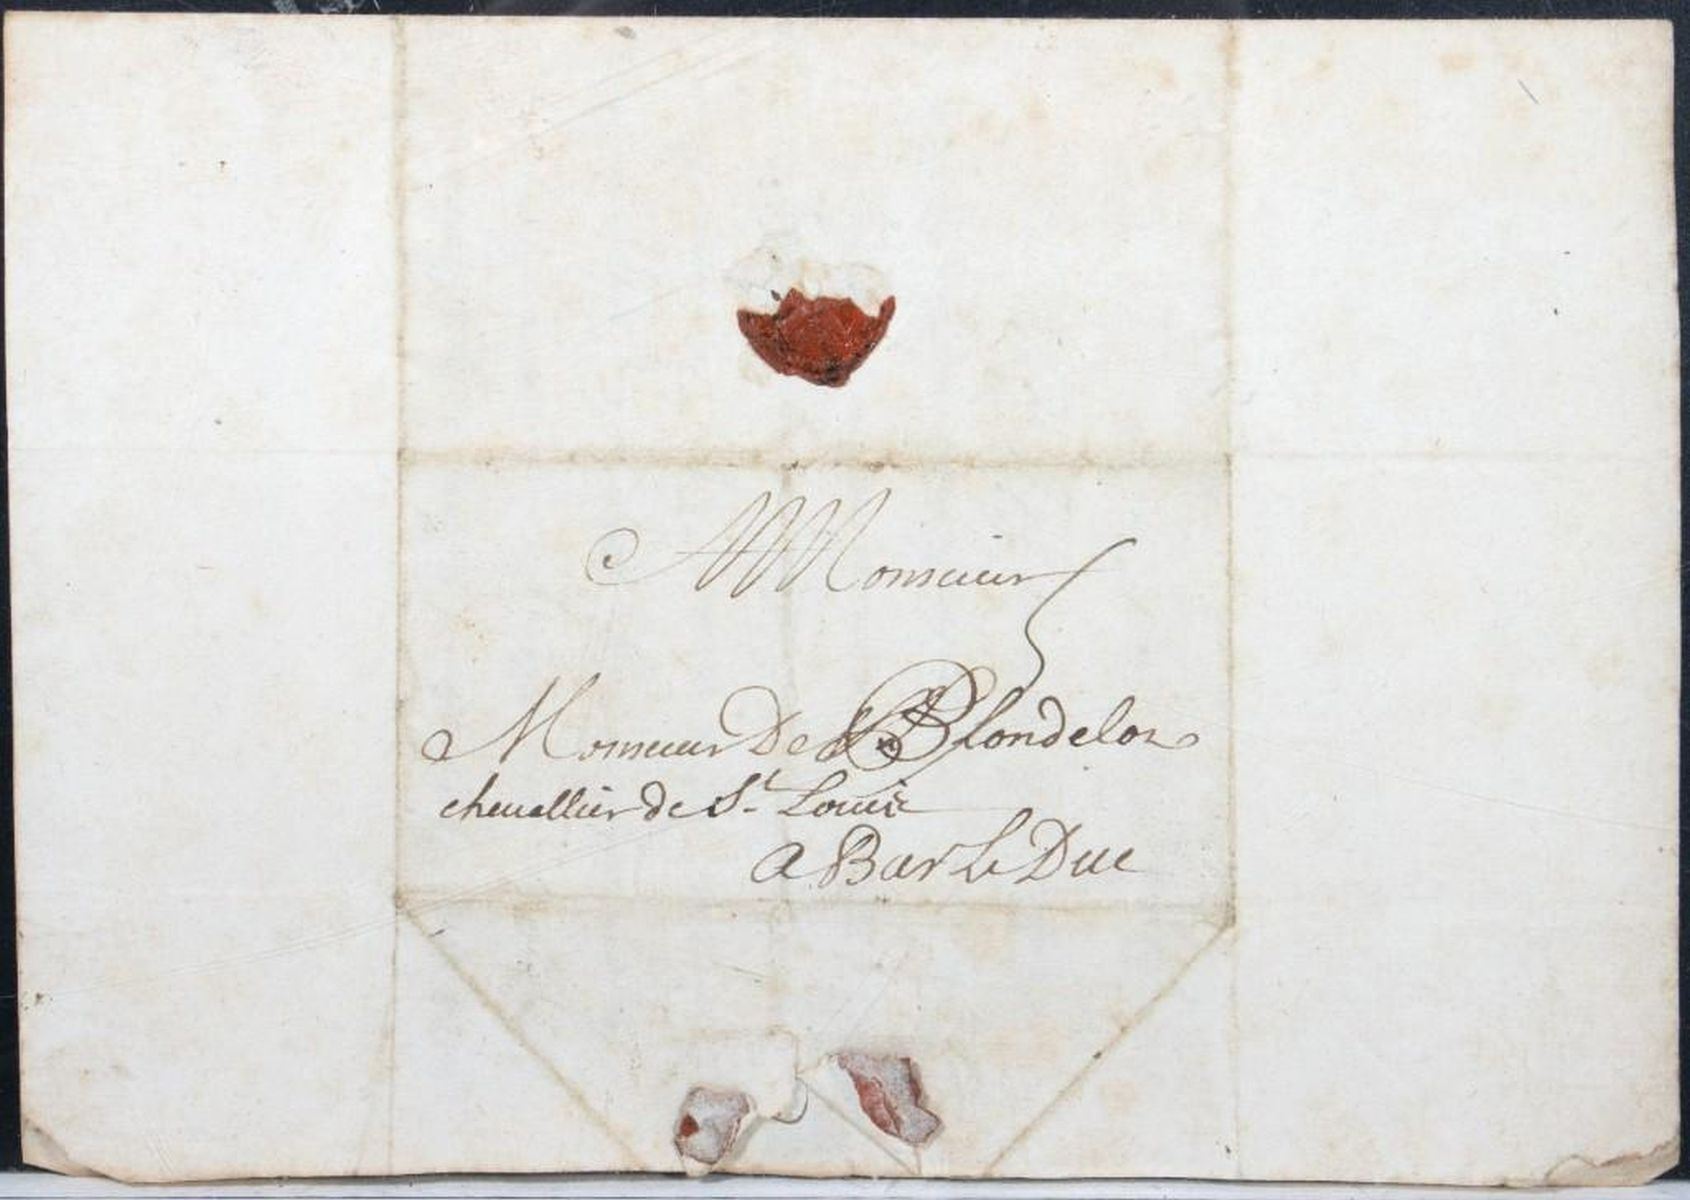 Monsieur
Monsieur De Blondelot
chevallier de St. Louis
a Bar Le Duc